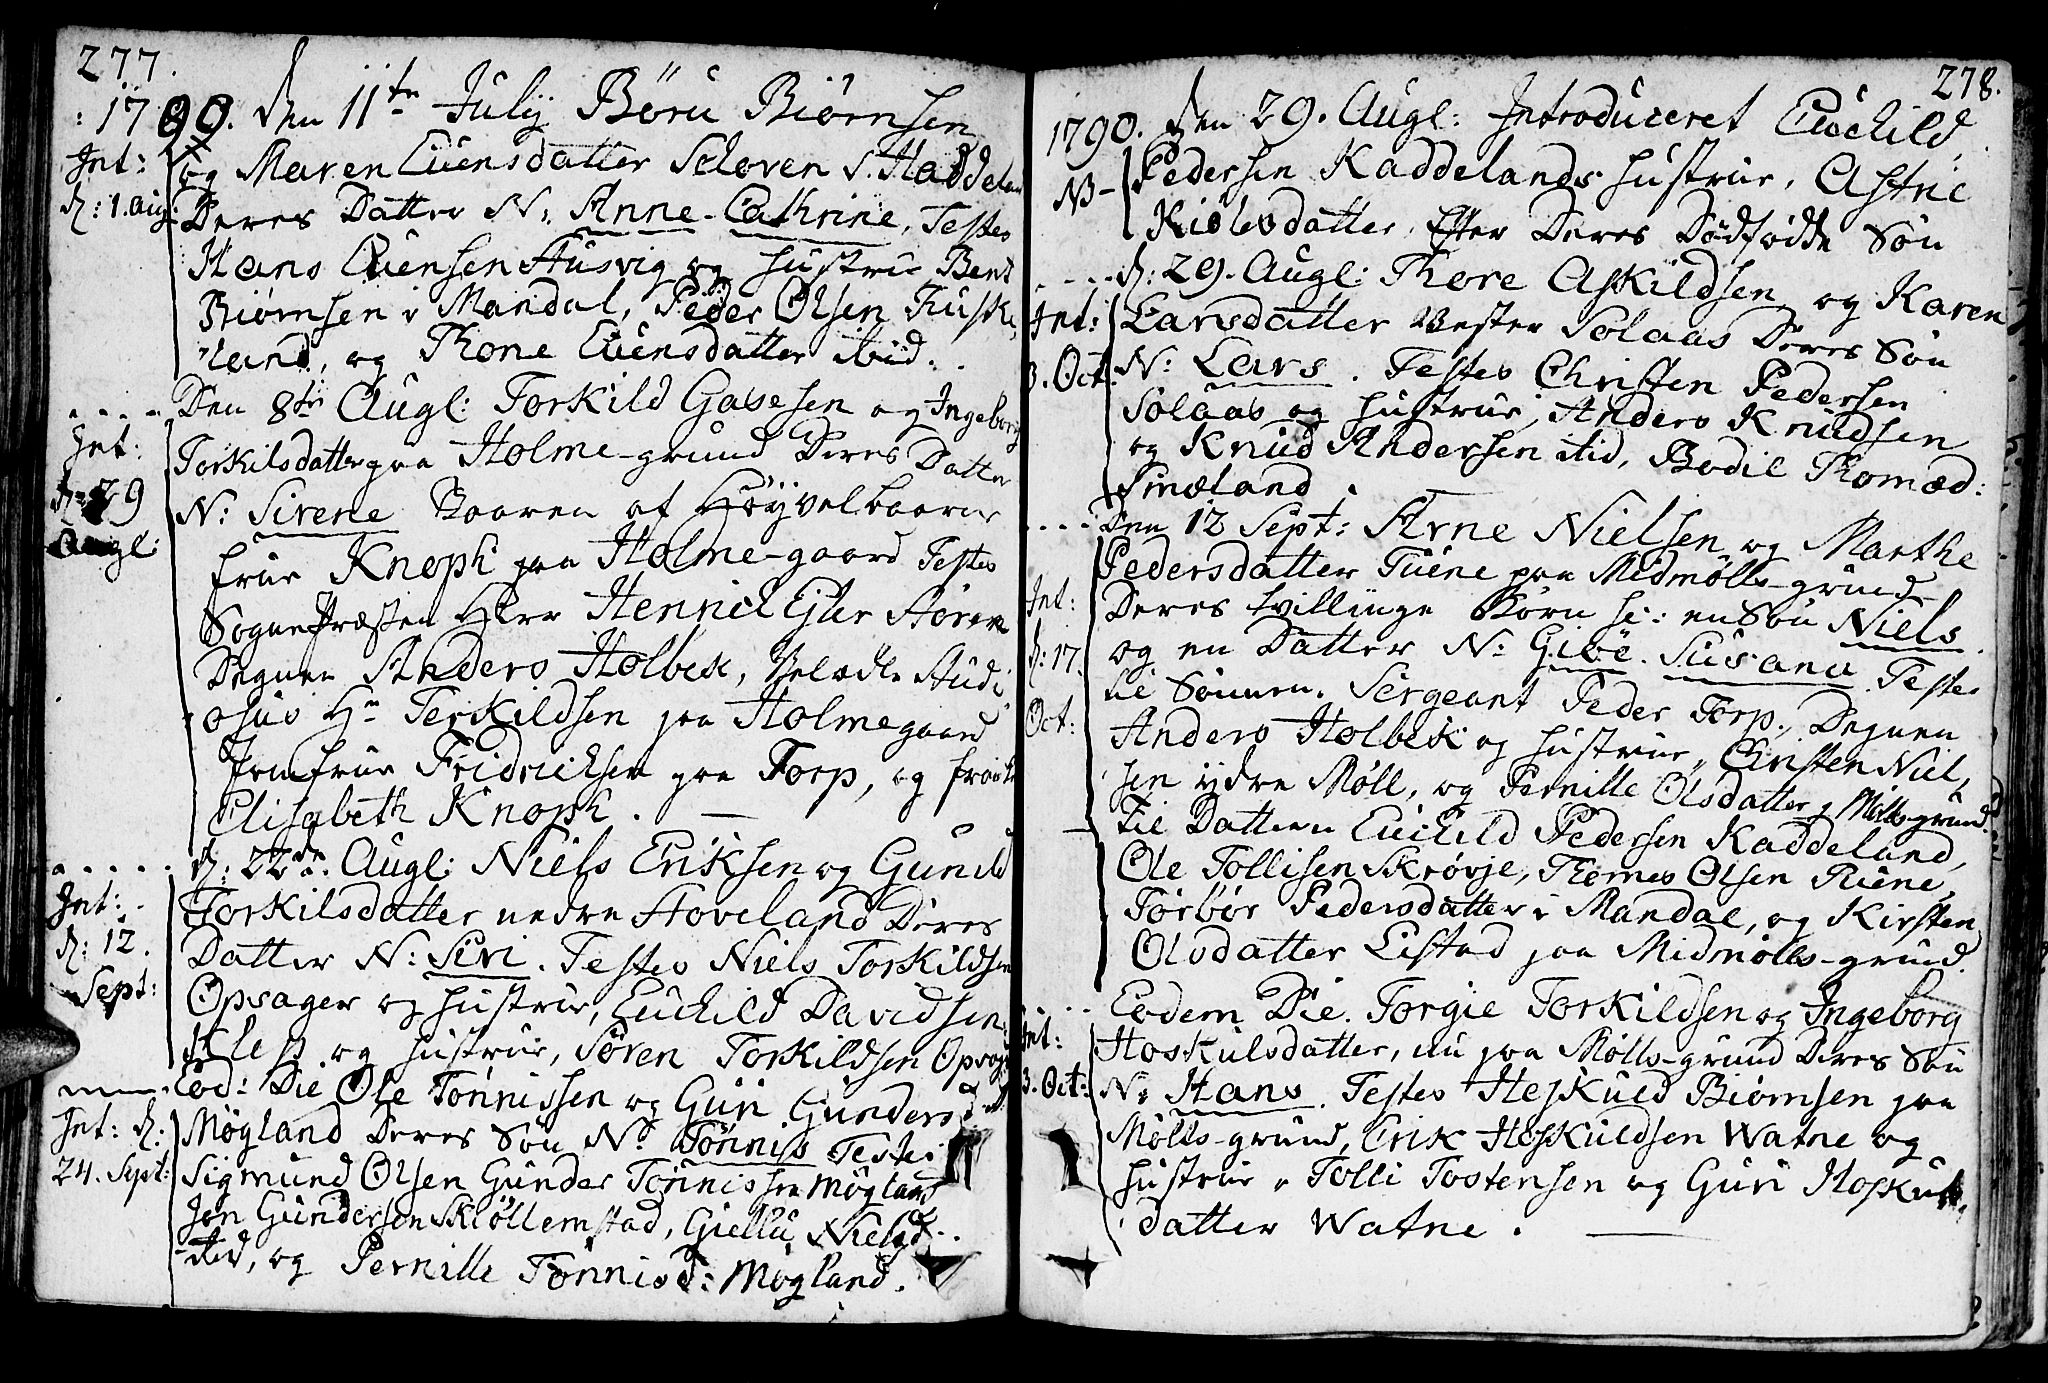 277.
1790. den 11te July Børu Biørnsen
Int:
og Maren Evensdatter S. Haddeland
d: 1. Aug:
Deres Datter N: Anne-Cathrine, Testes
Hans Evensen Husvig og Hustrue Bent
Biørnsen i Mandal, Peder Olsen
land, og Thone Evensdatter ibid.
Den 8de Augl: Torkild Gasesen og Ingeborg
Int:
Torkilsdatter paa Holme-grund Deres Datter
d: 29
N: Sirene Baaren af Høyvelbaarne
Augl:
Frue Knoph paa Holme-gaard Testes
SognePræsten Herr Hennich Ejler Støren
Degnen Anders Holbek, Velædle Studi
osus Hr Terkildsen paa Holmegaard
Jomfrue Fridrichsen paa Torp, og
Elisabeth Knoph.
d: 22de Augl: Niels Eriksen og Gunild
Int:
Torkilsdatter nedre Stoveland Deres
d: 12.
Datter N: Siri. Testes Niels Torkildsen
Sept:
Opsager og Hustrue, Euchild Davidsen
Kless og Hustrue, Søren Torkildsen Opsag:
Eod: Die Ole Tønnissen og Guri Gundersd:
Int: d:
Møgland Deres Søn N: Tønnis Testes
24. Sept:
Sigmund Olsen Gunder Tønnissen Møgland
Jon Gundersen Skiøllemstad, Giellu Nielsd:
sted, og Pernille Tønnisd: Møgland.
278.
1790. den 29. Augl: Introduceret Euchild
NB
Pedersen Kaddelands Hustrue, Astrie
Kiølesdatter, Efter Deres Dødfødde Søn
d: 29. Augl: Thore Askildsen og Karen
Int:
Larsdatter Vester Solaas Deres Søn
3. Oct:
N: Lars. Testes Christen Pedersen
Solaas og Hustrue, Anders Knudsen
og Knud Andersen ibid, Bodil Thomæd:
Smæland.
Den 12 Sept: Arne Nielsen og Marthe
Pedersdatter Tuene paa Midmølls-grund
Int:
Deres tvillinge Børn sc: en Søn Niels.
d: 17.
og en Datter N: Gibe. Susana Testes
Oct:
til Sønnen. Sergeant Peder Torp, Degnen
Anders Holbek og Hustrue, Christen Niel,
sen ydre Møll, og Pernille Olsdatter Mølls-grund.
til Datteren Euchild Pedersen Kaddeland,
Ole Tollisen Skrøvje, Thomes Olsen Tuene,
Torbor Pedersdatter i Mandal, og Kirsten
Olsdatter Listad paa Midmølls-grund.
Eodem Die. Torgie Torkildsen og Ingeborg
Int:
Hoskulsdatter, nu paa Mølls-grund Deres Søn
3. Oct:
N: Hans. Testes Heskuld Biørnsen paa
Mølls-grund, Erik Hoskuldsen Watne og
Hustrue, Tolli Tostensen og Guri Hoskuls
datter Watne.